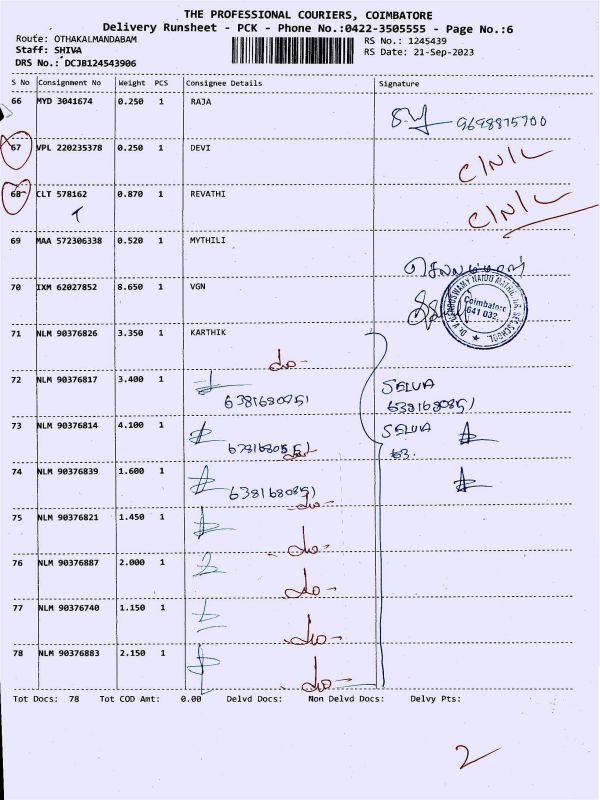 THE PROFESSIONAL COURIERS, COIMBATORE
Delivery Runsheet - PCK - Phone No.:0422-3505555 - Page No.:6
Route: OTHAKALMANDABAM
RS No.: 1245439
Staff: SHIVA
RS Date: 21-Sep-2023
DRS No.: DCJB124543906
S No Consignment No Weight PCS Consignee Details Signature
66 MYD 3041674 0.250 1 RAJA
9698815700
67 VPL 220235378 0.250 1 DEVI C/N/C
68 CLT 578162 0.870 1 REVATHI C/N/C
69 MAA 572306338 0.520 1 MYTHILI
70 IXM 62027852 8.650 1 VGN
Coimbatore
641 032
71 NLM 90376826 3.350 1 KARTHIK
72 NLM 90376817 3.400 1 SELVA
6381680851 6381680851
73 NLM 90376814 4.100 1 SELVA
63.
74 NLM 90376839 1.600 1
6381680851
75 NLM 90376821 1.450 1
76 NLM 90376887 2.000 1
77 NLM 90376740 1.150 1
78 NLM 90376883 2.150 1
Tot Docs: 78 Tot COD Amt: 0.00 Delvd Docs: Non Delvd Docs: Delvy Pts:
2